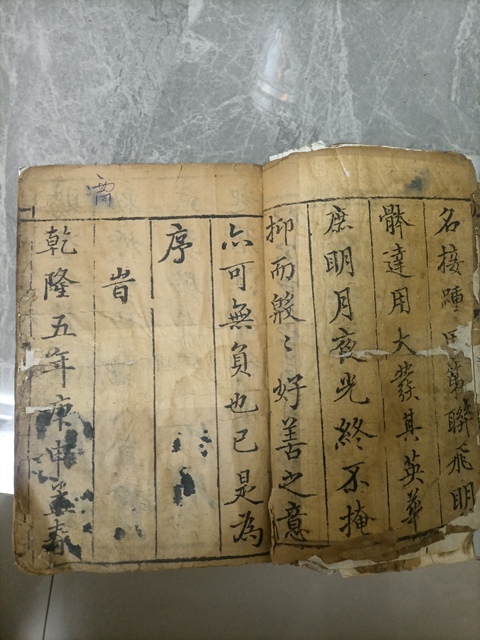 名接踵甲第聯飛明
骵達用大發其英華
庶明月夜光終不掩
抑而殷〻好善之意
亦可無負也已是為
序
旹
乾隆五年庚申孟春